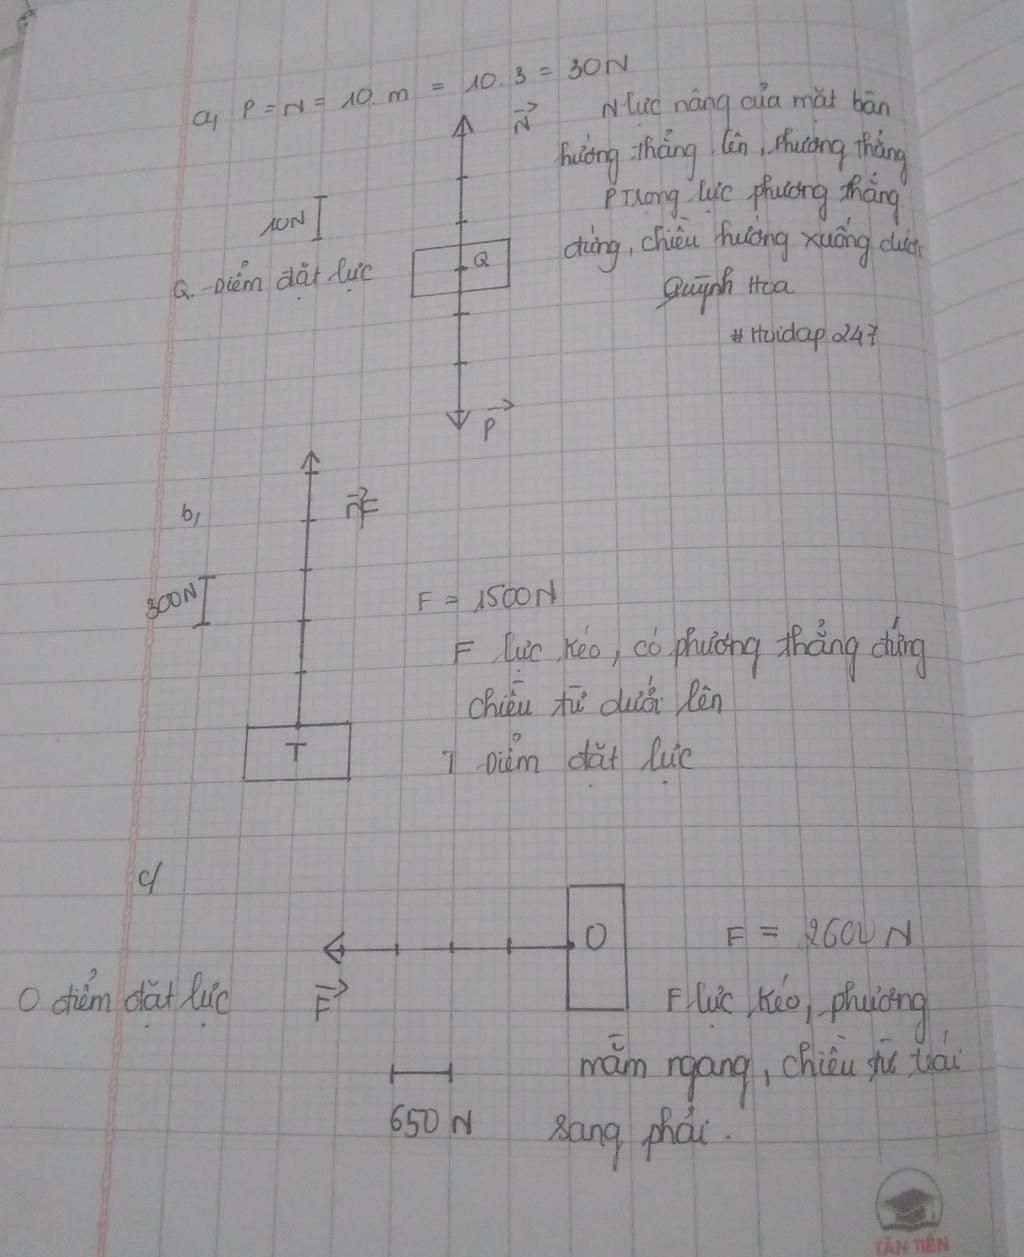 a, P = N = 10. m = 10. 3 = 30N
N lực nâng của mặt bàn
hướng thẳng lên, phương thẳng
P Trọng lực phương thẳng
đứng, chiều hướng xuống dưới
Quỳnh Hoa
# Hoidap 247
N
10N
Q
Q - Điểm đặt lực
P
b,
F
300N
F = 1500N
F lực kéo, có phương thẳng đứng
chiều từ dưới lên
T
T Điểm đặt lực
c/
O
F = 2600 N
O điểm đặt lực
F
F lực kéo, phương
nằm ngang, chiều từ trái
650 N
sang phải.
TÂN TIẾN